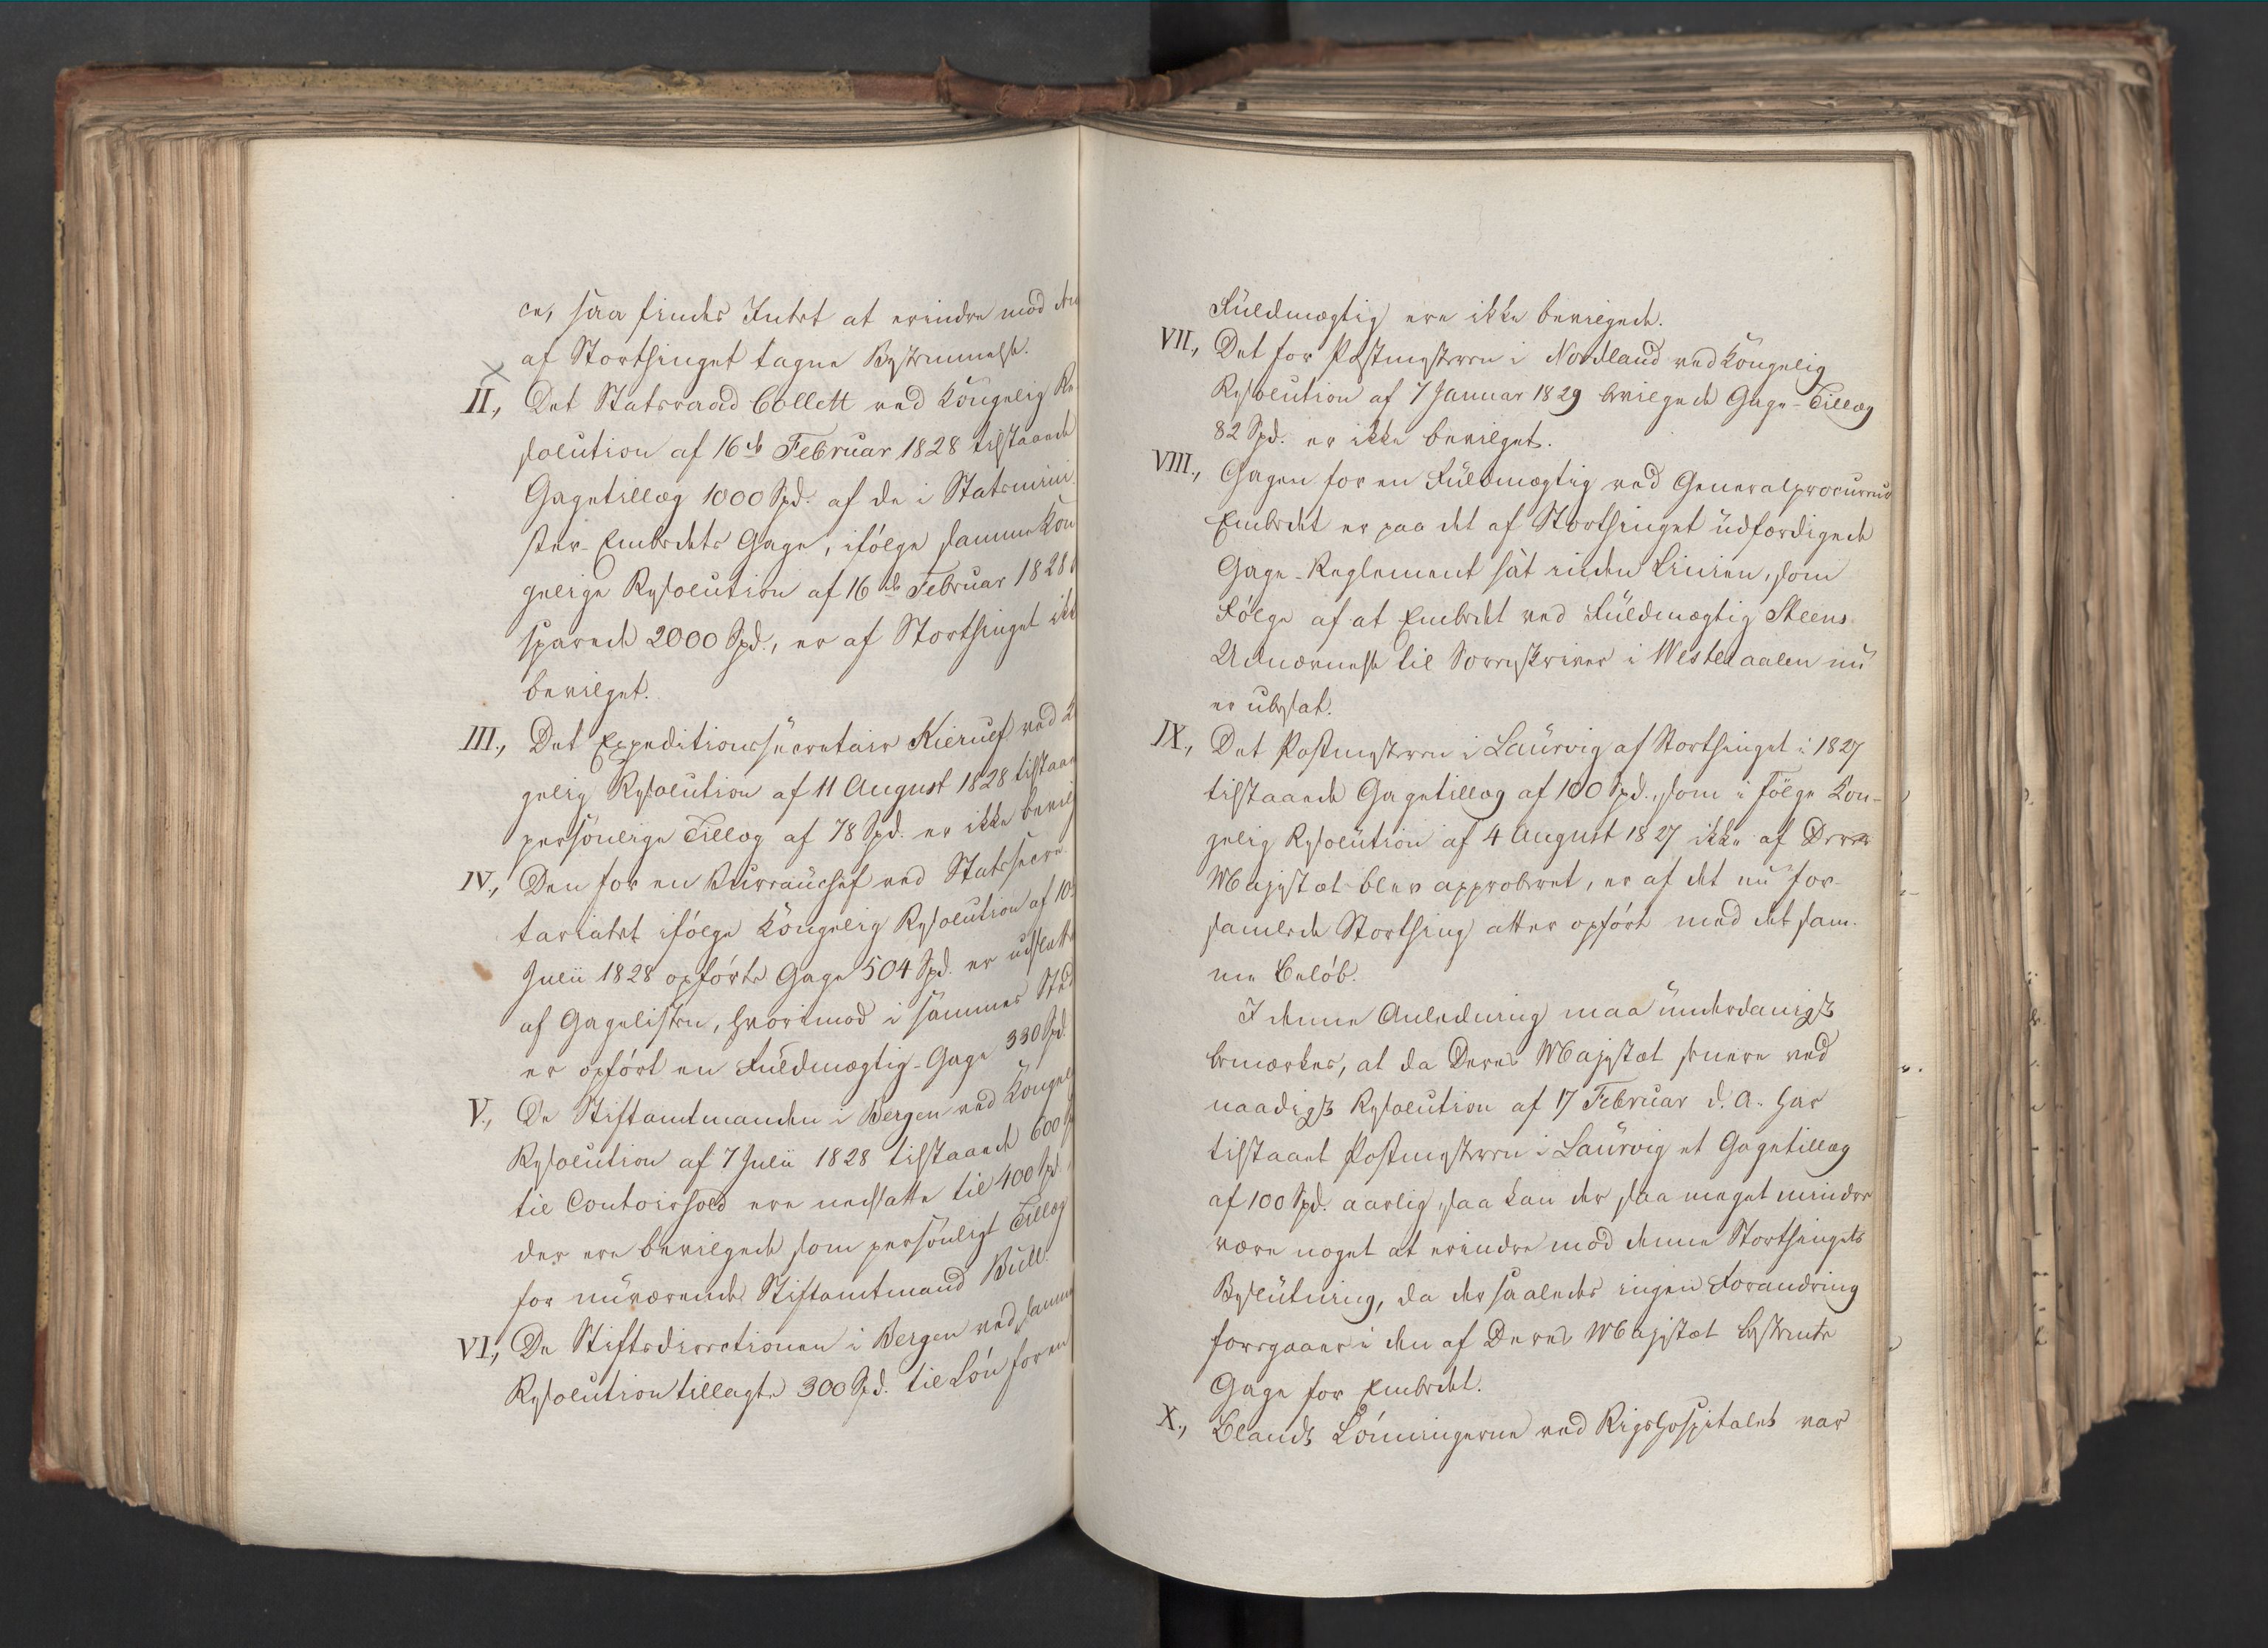 ce, saa findes Intet at erindre mod den
af Storthinget tagne Bestemmelse.
II., Det Statsraad Collett ved Kongelig Re-
solution af 16de Februar 1828 tilstaaede
Gagetillæg 1000 Spd. af de i Statsmini-
ster-Embedets Gage, ifølge samme Kon-
gelige Resolution af 16de Februar 1828
sparede 2000 Spd., er af Storthinget ikke
bevilget.
III., Det Expeditionssecretair Kierulf ved
gelig Resolution af 11 August 1828 tilstaaede
personlige Tillæg af 78 Spd. er ikke bevilget
IV., Den for en Bureauchef ved Statssecre-
tariatet ifølge Kongelig Resolution af 10
Julii 1828 opførte Gage 504 Spd. er udslettet
af Gagelisten, hvorimod i sammes Sted
er opført en Fuldmægtig-Gage 330 Spd.
V., De Stiftamtmanden i Bergen ved Kongelig
Resolution af 7 Julii 1828 tilstaaede 600
til Contoirhold ere nedsatte til 400 Spd.
der ere bevilgede som personligt Tillæg
for nuværende Stiftamtmand Bull.
VI., De Stiftsdirectionen i Bergen ved samme
Resolution tillagte 300 Spd. til Løn for en
Fuldmægtig ere ikke bevilgede.
VII., Det for Postmesteren i Nordland ved Kongelig
Resolution af 7 Januar 1829 bevilgede Gage-Tillæg
82 Spd. er ikke bevilget.
VIII., Gagen for en Fuldmægtig ved Generalprocureur
Embedet er paa det af Storthinget udfærdigede
Gage-Reglement sat inden Linien, som
Følge af at Embedet ved Fuldmægtig Steens
Udnævnelse til Sorenskriver i Westeraalen nu
er ubesat.
IX., Det Postmesteren i Laurvig af Storthinget i 1827
tilstaaede Gagetillæg af 100 Spd., som i Følge Kon-
gelig Resolution af 4 August 1827 ikke af Deres
Majestæt blev approberet, er af det nu for-
samlede Storthing atter opført med det sam-
me Beløb.
I denne Anledning maa underdanigst
bemærkes, at da Deres Majestæt senere ved
naadigst Resolution af 17 Februar d. A. har
tilstaaet Postmesteren i Laurvig et Gagetillæg
af 100 Spd. aarlig, saa kan der saa meget mindre
være noget at erindre mod denne Storthingets
Beslutning, da der saaledes ingen Forandring
foregaaer i den af Deres Majestæt bestemte
Gage for Embedet.
X., Blandt Lønningerne ved Rigshospitalet var